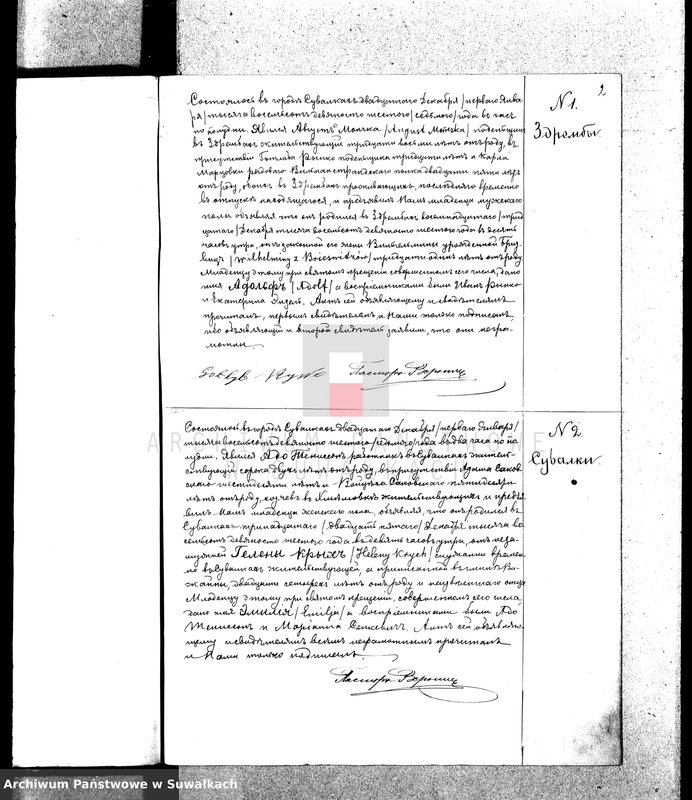 2
N 1.
Здрембы.
Состоялось въ городѣ Сувалкахъ двадцатаго Декабря /перваго Янва-
ря/ тысяча восемьсотъ девяносто шестого /седьмого/ года въ часъ
по полудни. Явился Августъ /August/ поденьщикъ
въ Здрембахъ жительствующій тридцати восьми лѣтъ отъ роду, въ
присутствіи Готлиба Рынко поденьщика тридцати лѣтъ и Карла
рядового полка двадцати пяти лѣтъ
отъ роду, обоихъ въ Здрембахъ проживающихъ, послѣдняго временно
въ отпуску находящагося, и предъявилъ Намъ младенца мужескаго
пола объявляя что онъ родился въ Здрембахъ восемнадцатаго /трид-
цатаго/ Декабря тысяча восемьсотъ девяносто шестого года въ десять
часовъ утра, отъ законной его жены Вильгельмины урожденной
/Wilhelminy z / тридцати одинъ лѣтъ отъ роду.
Младенцу этому при святомъ крещеніи совершенномъ сего числа, дано
имя Адольфъ /Adolf/ а воспріемниками были Иванъ Рынко
и Екатерина Актъ сей объявляющему и свидѣтелямъ
прочитанъ, первымъ свидѣтелемъ и Нами только подписанъ,
ибо объявляющій и второй свидѣтель заявили, что они негра-
мотны.
Gotlib Rynko Пасторъ
N 2.
Сувалки.
Состоялось въ городѣ Сувалкахъ двадцатаго Декабря /перваго Января/
тысяча восемьсотъ девяносто шестого /седьмого/ года въ два часа по по-
лудни. Явился Адо Тениссонъ работникъ въ Сувалкахъ житель-
ствующій сорока двухъ лѣтъ отъ роду, въ присутствіи Адама Саков-
скаго шестидесяти лѣтъ и Войцѣха Саковскаго пятидесяти
лѣтъ отъ роду, въ жительствующихъ и предъя-
вилъ Намъ младенца женскаго пола, объявляя, что онъ родился въ
Сувалкахъ тринадцатаго /двадцать пятаго/ Декабря тысяча во-
семьсотъ девяносто шестого года въ девять часовъ утра, отъ неза-
мужней Гелены Крыхъ /Heleny Krych/ служанки времен-
но въ Сувалкахъ жительствующей, а приписанной въ гминѣ Ви-
жайны, двадцати четырехъ лѣтъ отъ роду и неизвѣстнаго отца.
Младенцу этому при святомъ крещеніи, совершенномъ сего числа
дано имя Эмилія /Emilja/ а воспріемниками были Адо
Тениссонъ и Маріанна Сенкевичъ. Актъ сей объявляю-
щему и свидѣтелямъ всѣмъ неграмотнымъ прочитанъ
и Нами только подписанъ.
Пасторъ
Archiwum Państwowe w Suwałkach